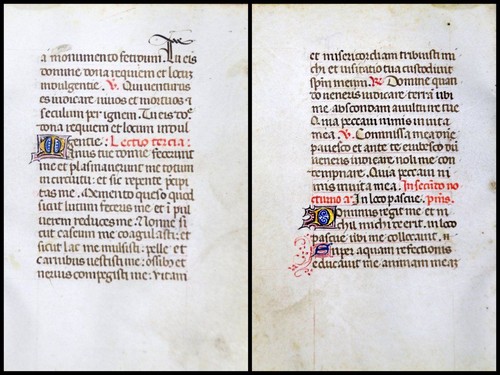 a monumento fetidum. Tu eis
domine dona requiem et locum
indulgentie. V. Qui venturus
es iudicare vivos et mortuos et
seculum per ignem. Tu eis do
dona requiem et locum indul
gentie: Lectio tercia:
Manus tue domine fecerunt
me et plasmaverunt me totum
in circuitu: et sic repente precipi
tas me. Memento queso quod
sicut lutum feceris me et i pul
verem reduces me? Nonne si
cut caseum me coagulasti: et
sicut lac me mulsisti? pelle et
carnibus vestisti me: ossib9 et
nervis compegisti me: vitam
et misericordiam tribuisti mi
chi et visitatio tua custodivit
spm meum. R. Domine quan
do veneris iudicare terram ubi
me abscondam a vultu ire tue
Quia peccavi nimis in vita
mea. V. Commissa mea dne
pavesco et ante te erubesco dum
veneris iudicare noli me con
tempnare. Quia peccavi ni
mis in vita mea. In secundo no
cturno a: In loco pascue. psms.
Dominus regit me et ni
chil michi deerit. in loco
pascue ibi me collocavit.
Super aquam refectionis
educavit me animam meam